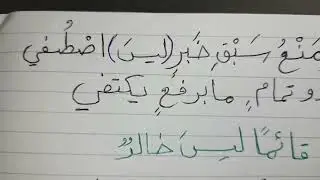 مَنْعُ سَبْقِ خَبَرٍ (ليسَ) اصْطُفي
وتمامٍ ما برفعٍ يكتفي
قائمًا ليسَ خالدٌ